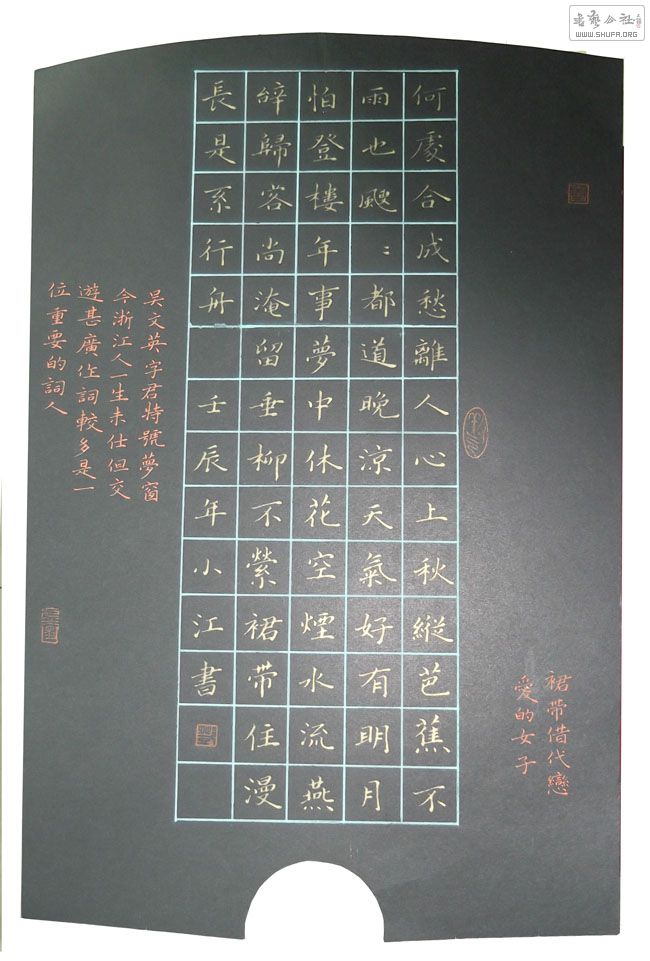 書藝公社
WWW.SHUFA.ORG
裙帶借代戀
愛的女子
何處合成愁離人心上秋縱芭蕉不
雨也颼：都道晚涼天氣好有明月
怕登樓年事夢中休花空煙水流燕
辭歸客尚淹留垂柳不縈裙帶住漫
長是系行舟 壬辰年小江書
吳文英字君特號夢窗
今浙江人一生未仕但交
遊甚廣作詞較多是一
位重要的詞人